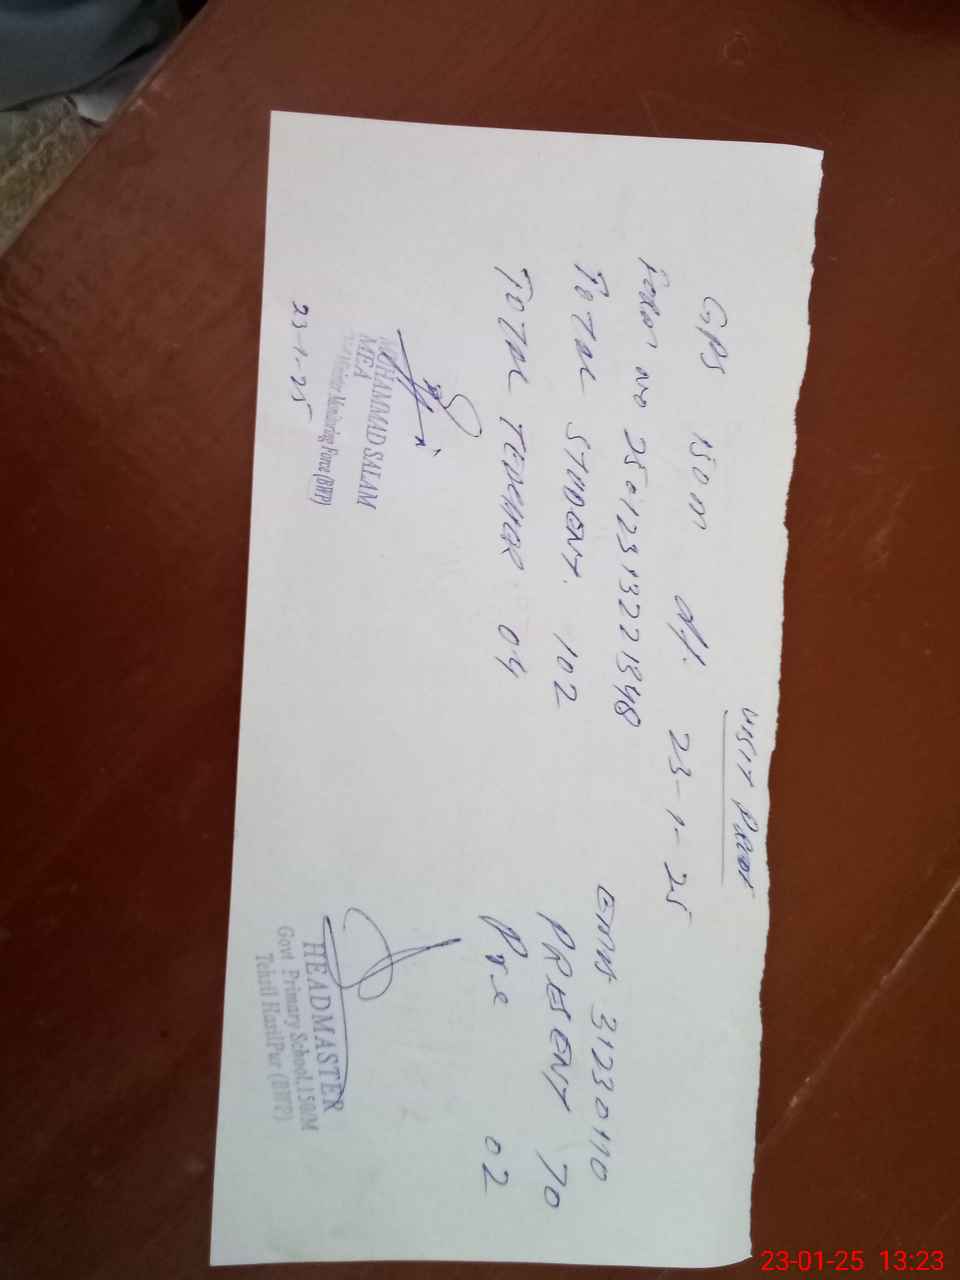 VISIT PROOF
GPS 150 M dt. 23-1-25
no 25012313221848 EMIS 31230110
TOTAL STUDENT. 102 PRESENT 70
TOTAL TEACHER 04 Pre 02
MUHAMMAD SALAM
MEA
Monitoring Force (BWP)
23-1-25
HEADMASTER
Govt Primary School, 150/M
Tehsil HasilPur (BWP)
23-01-25 13:23